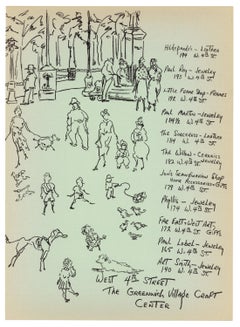 Hildegarde's - Leather
194 W. 4th ST
Paul Roy - Jewelry
190 W. 4th ST
Little Frame Shop - Frames
192 W. 4th ST.
Paul Martin - Jewelry
189½ W. 4th ST
The Sorcerers - Leather
184 W. 4th ST
The Willow - Ceramics
182 W. 4th ST Jewelry
Jon's Scandinavian Shop
Home Accessories - Gifts
179 W. 4th ST
Phyllis - Jewelry
174 W. 4th ST
Far East-West Arts,
172 W. 4th ST Gifts
Paul Lobel - Jewelry
165 W. 4th ST.
Art Smith - Jewelry
140 W. 4th ST
West 4th Street
The Greenwich Village Craft
Center